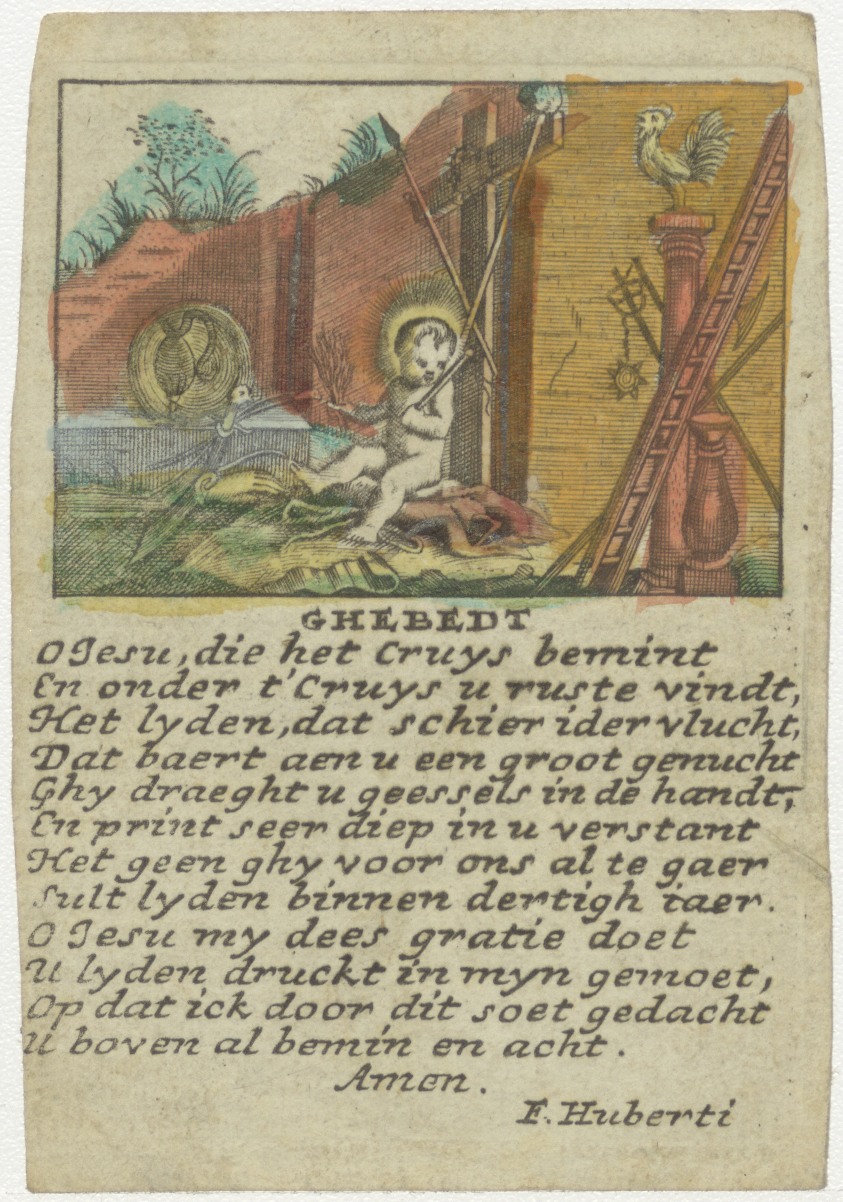 GHEBEDT
O Jesu, die het Cruys bemint
En onder t'Cruys u ruste vindt,
Het lyden, dat schier ider vlucht,
Dat baert aen u een groot genucht
Ghy draeght u geessels in de handt,
En print seer diep in u verstant
Het geen ghy voor ons al te gaer
Sult lyden binnen dertigh iaer.
O Jesu my dees gratie doet
U lyden druckt in myn gemoet,
Op dat ick door dit soet gedacht
U boven al bemin en acht.
Amen.
F. Huberti